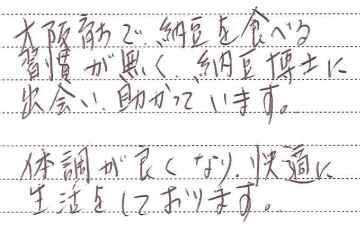 大阪育ちで、納豆を食べる
習慣が無く、納豆博士に
出会い、助かっています。
体調が良くなり、快適に
生活をしております。